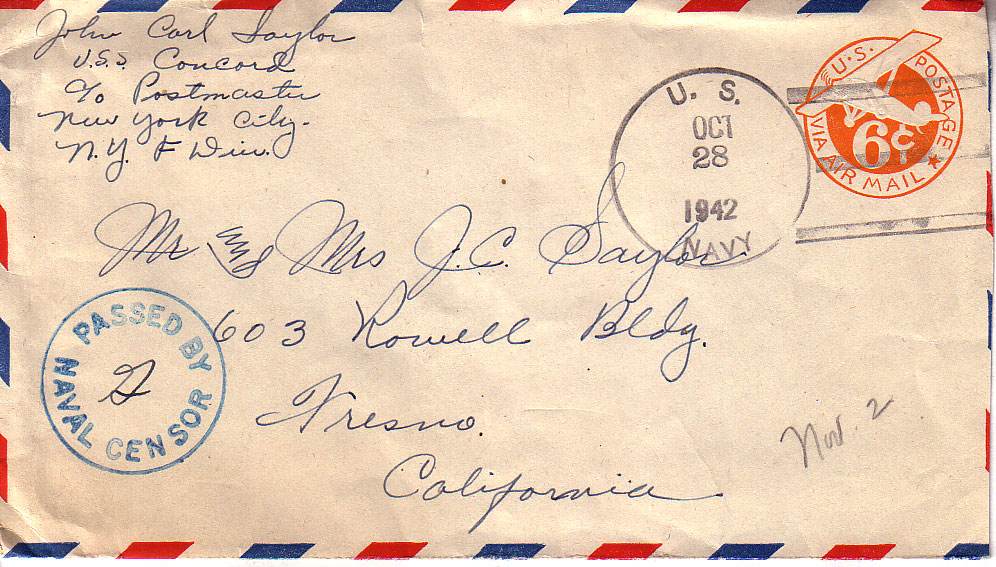 John Carl Saylor
U.S.S. Concord
c/o Postmaster
New York City-
N.Y. F Div.
U. S.
OCT
28
1942
NAVY
U.S. POSTAGE
6¢
VIA AIR MAIL
Mr and Mrs J.C. Saylor.
603 Rowell Bldg.
Fresno.
California
PASSED BY
NAVAL CENSOR
Nov. 2